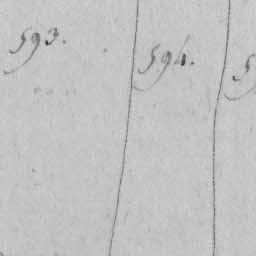 593.
594.